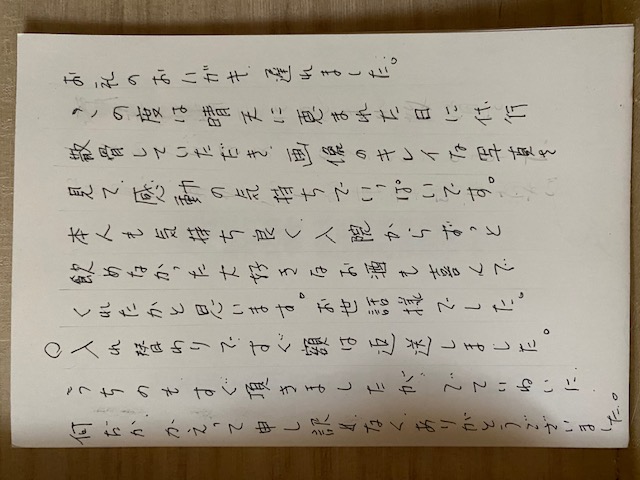 お礼のおハガキ遅れました。
この度は晴天に恵まれた日に代行
散骨していただき画像のキレイな写真を
見て感動の気持ちでいっぱいです。
本人も気持ち良く入院からずっと
飲めなかった大好きなお酒も喜んで
くれたかと思います。お世話様でした。
○入れ替わりですぐ額は返送しました。
うちのもすぐ頂きましたが、でていねいに
何おか、かえって申し訳なくありがとうございました。